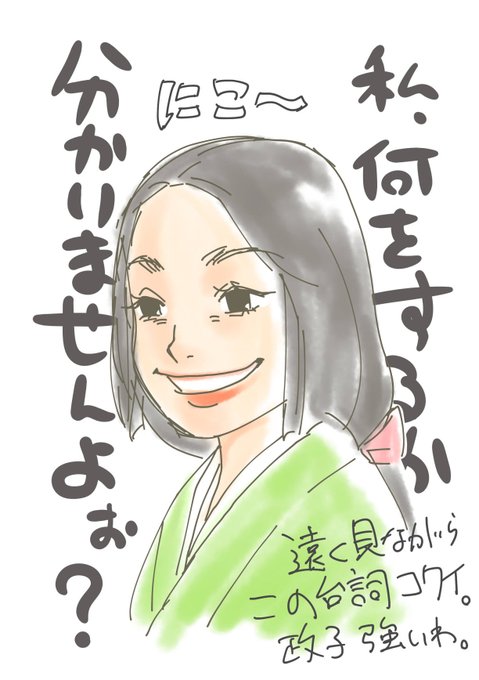 私、何をするか
分かりませんよぉ?
にこ〜
遠く見ながら
この台詞コワイ。
政子強いわ。